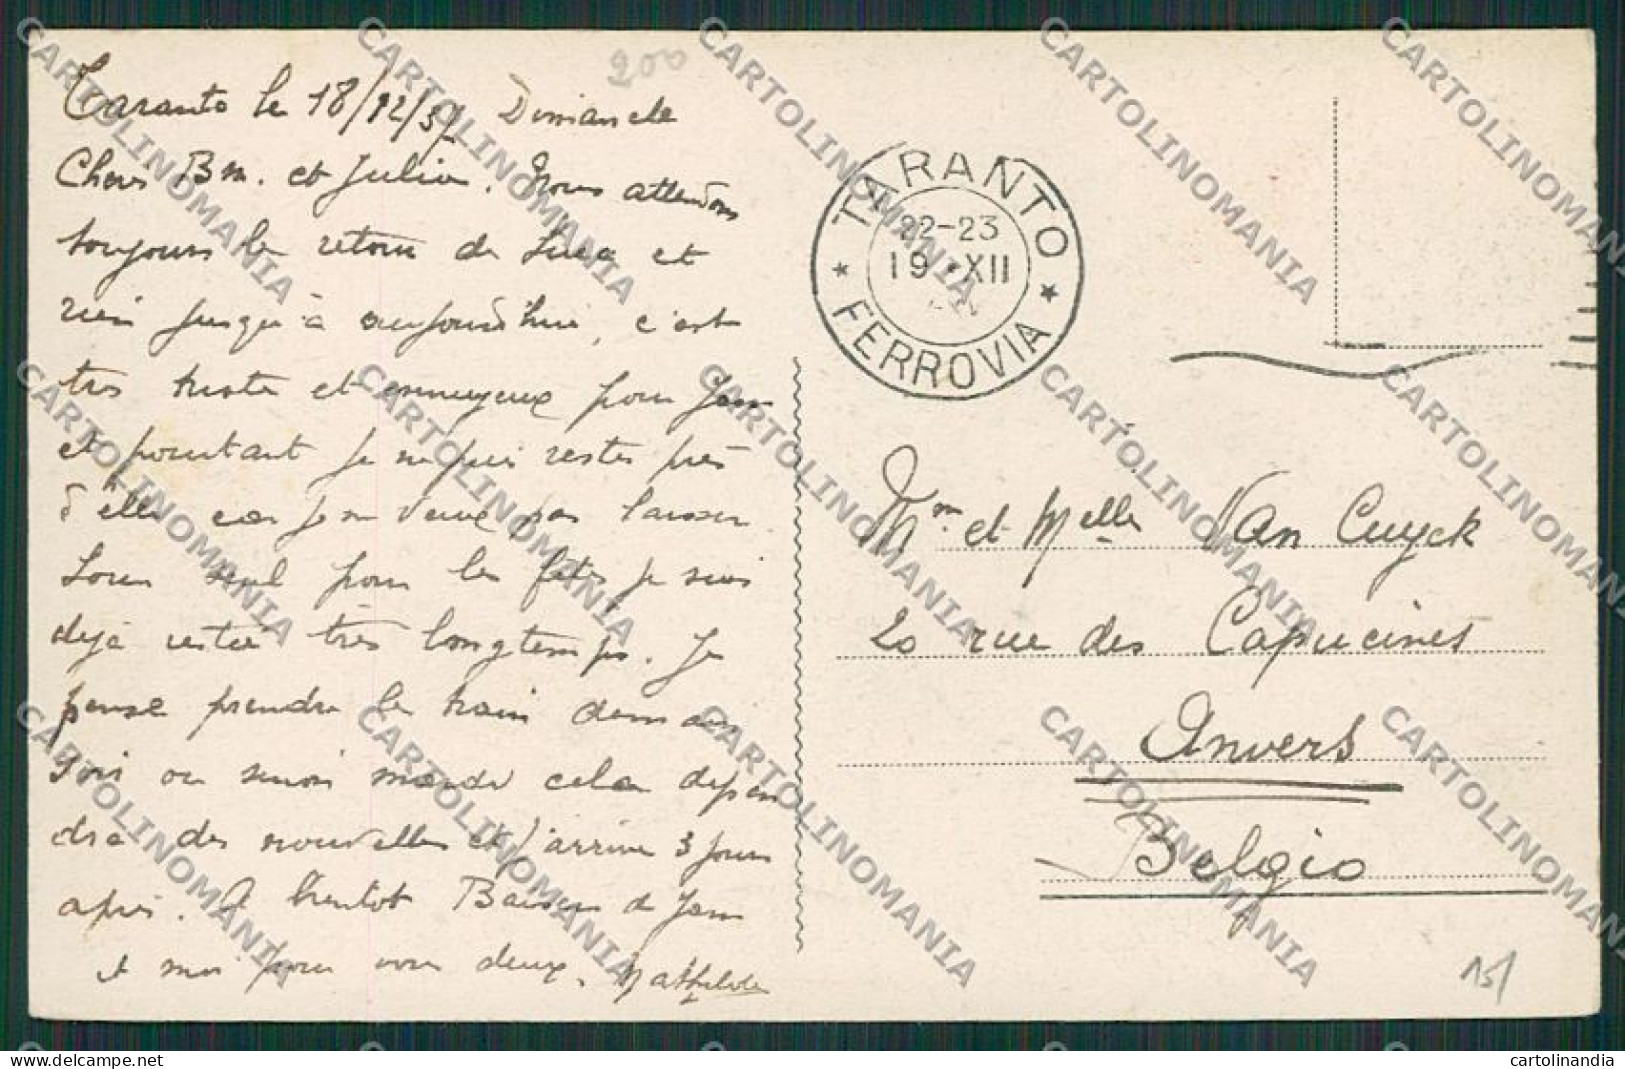 200
Taranto le 18/12/37 Dimanche
Chers Bm. et Julia. Nous attendons
toujours le retour de Luca et
rien jusqu'à aujourd'hui, c'est
très triste et ennuyeux pour
et pourtant je ne puis rester près
d'elle car je ne veux pas laisser
seul pour les fêtes je suis
déjà restée très longtemps. Je
pense prendre le train demain
soir ou sinon mardi cela dépen
dra des nouvelles et j'arrive 3 jours
après. A bientôt Baisers de
et moi pour vous deux. Mathilde
TARANTO
22-23
19 XII
FERROVIA
Mm et Melle Van Cuyck
20 rue des Capucines
Anvers
Belgio
15/
CARTOLINOMANIA
www.delcampe.net
cartolinandia